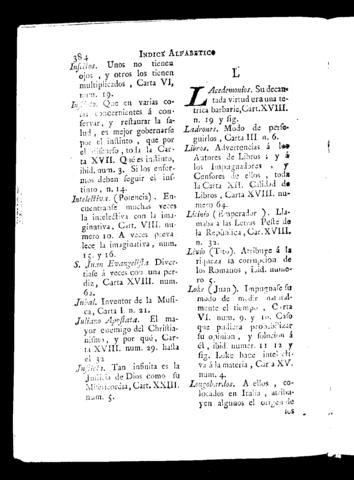 384 INDICE ALFABETICO
Insectos. Unos no tienen
ojos, y otros los tienen
multiplicados, Carta VI,
num. 19.
Que en varias co-
sas concernientes á con-
servar, y restaurar la sa-
lud, es mejor gobernarse
por el instinto, que por
el discurso, toda la Car-
ta XVII. Qué es instinto,
ibid. num. 3. Si los enfer-
mos deben seguir el ins-
tinto, n. 14.
Intelectiva. (Potencia). En-
cuentranse muchas veces
la intelectiva con la ima-
ginativa, Cart. VIII. nu-
mero 10. A veces preva-
lece la imaginativa, num.
15. y 16.
S. Juan Evangelista Diver-
tiase á veces con una per-
diz, Carta XVIII. num.
62.
Jubal. Inventor de la Musi-
ca, Carta I. n. 21.
Juliano Apostata. El ma-
yor enemigo del Christia-
nismo, y por qué, Car-
ta XVIII. num. 29. hasta
el 32
Justicia. Tan infinita es la
Justicia de Dios como su
Misericordia, Cart. XXIII.
num. 5.
L
Lacedemonios. Su decan-
tada virtud era una te-
trica barbarie, Cart. XVIII.
n. 19 y sig.
Ladrones. Modo de perse-
guirlos, Carta III n. 6.
Libros. Advertencias á los
Autores de Libros; y á
los impugnadores, y
Censores de ellos, toda
la Carta XII. Calidad de
Libros, Carta XVIII. nu-
mero 64.
Licinio (Emperador). Lla-
maba á las Letras Peste de
la República, Car. XVIII.
n. 32.
Livio (Tito). Atribuye á la
riqueza la corrupcion de
los Romanos, ibid. nume-
ro 5.
Loke (Juan). Impugnase su
modo de medir natural-
mente el tiempo, Carta
VI. num. 9. y 10. Caso
que pudiera probabilizar
su opinion, y solucion á
él, ibid. numer. 11 12 y
sig. Loke hace intelecti-
va á la materia, Car. a XV.
num. 4.
Longobardos. A ellos, co-
locados en Italia, atribu-
yen algunos el origen de
los